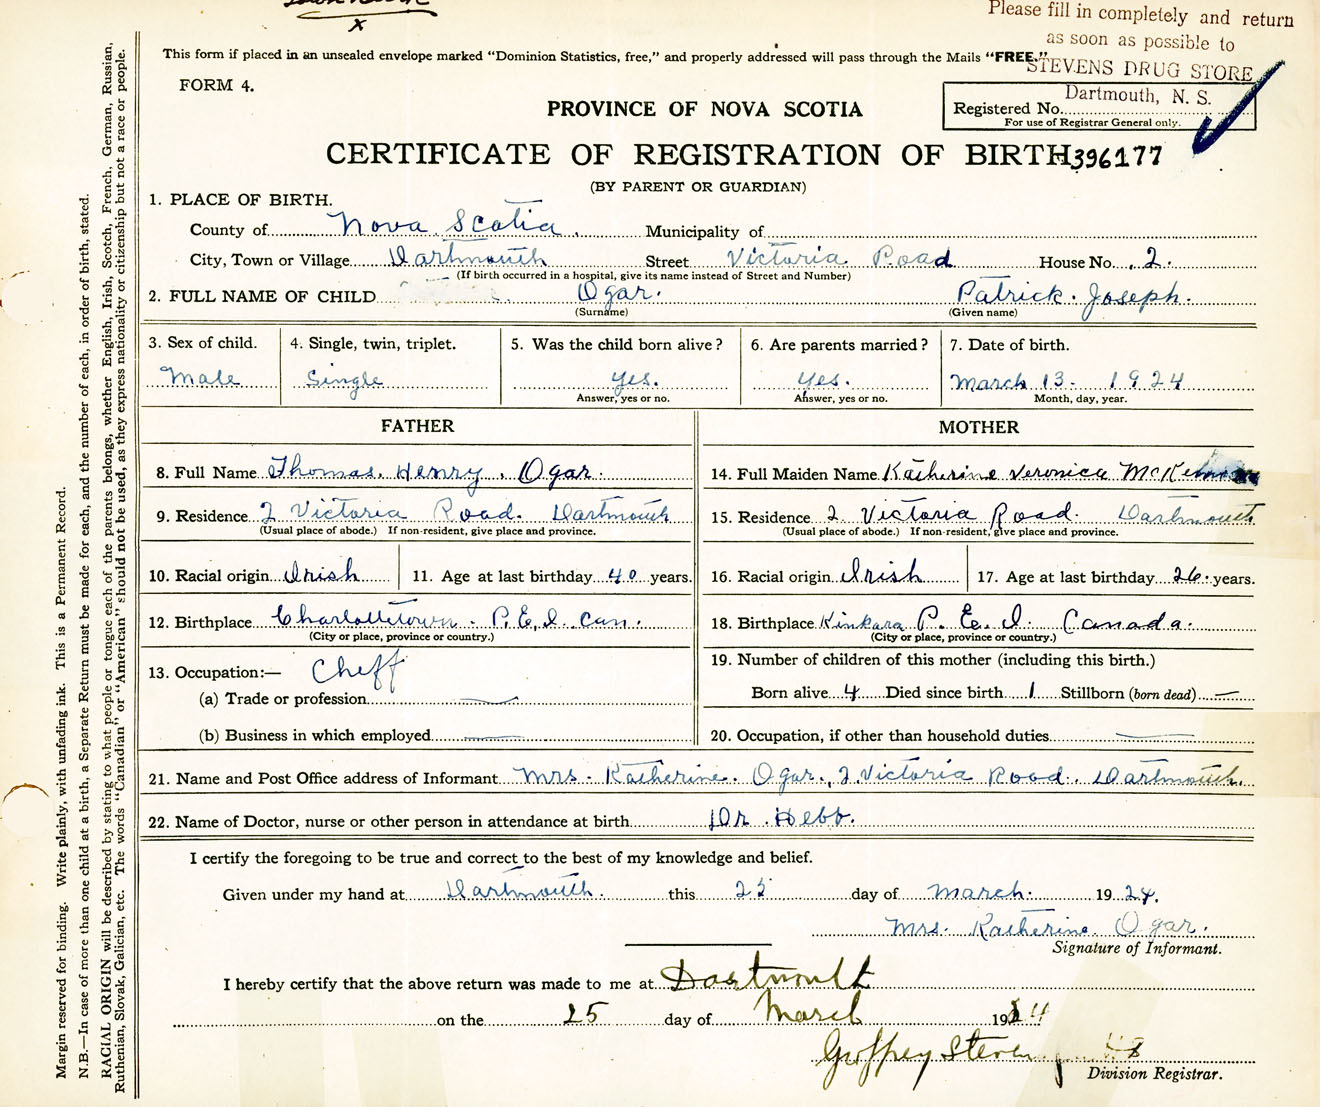 x
Please fill in completely and return
as soon as possible to
STEVENS DRUG STORE
Dartmouth, N. S.
This form if placed in an unsealed envelope marked "Dominion Statistics, free," and properly addressed will pass through the Mails "FREE."
FORM 4.
PROVINCE OF NOVA SCOTIA
Registered No.
For use of Registrar General only.
CERTIFICATE OF REGISTRATION OF BIRTH 396177
(BY PARENT OR GUARDIAN)
1. PLACE OF BIRTH.
County of Nova Scotia. Municipality of
City, Town or Village Dartmouth Street Victoria Road House No. 2.
(If birth occurred in a hospital, give its name instead of Street and Number)
2. FULL NAME OF CHILD Ogar. Patrick. Joseph.
(Surname) (Given name)
3. Sex of child. 4. Single, twin, triplet. 5. Was the child born alive? 6. Are parents married? 7. Date of birth.
Male Single yes. yes. March 13- 1924
Answer, yes or no. Answer, yes or no. Month, day, year.
FATHER MOTHER
8. Full Name Thomas. Henry. Ogar. 14. Full Maiden Name Katherine Veronica
9. Residence 2 Victoria Road. Dartmouth 15. Residence 2. Victoria Road. Dartmouth
(Usual place of abode.) If non-resident, give place and province. (Usual place of abode.) If non-resident, give place and province.
10. Racial origin Irish 11. Age at last birthday 40 years. 16. Racial origin Irish 17. Age at last birthday 26. years.
12. Birthplace Charlottetown. P.E.I. Can. 18. Birthplace Kinkara P. E. I. Canada.
(City or place, province or country.) (City or place, province or country.)
13. Occupation:— Cheff 19. Number of children of this mother (including this birth.)
(a) Trade or profession — Born alive 4 Died since birth 1 Stillborn (born dead) —
(b) Business in which employed — 20. Occupation, if other than household duties —
21. Name and Post Office address of Informant Mrs. Katherine. Ogar, 2 Victoria Road. Dartmouth.
22. Name of Doctor, nurse or other person in attendance at birth Dr. Hebb.
I certify the foregoing to be true and correct to the best of my knowledge and belief.
Given under my hand at Dartmouth. this 25 day of March. 1924.
Mrs. Katherine. Ogar.
Signature of Informant.
I hereby certify that the above return was made to me at Dartmouth
on the 25 day of March 1924
Geoffrey Stevens
Division Registrar.
Margin reserved for binding. Write plainly, with unfading ink. This is a Permanent Record.
N.B.—In case of more than one child at a birth, a Separate Return must be made for each, and the number of each, in order of birth, stated.
RACIAL ORIGIN will be described by stating to what people or tongue each of the parents belongs, whether English, Irish, Scotch, French, German, Russian,
Ruthenian, Slovak, Galician, etc. The words "Canadian" or "American" should not be used, as they express nationality or citizenship but not a race or people.